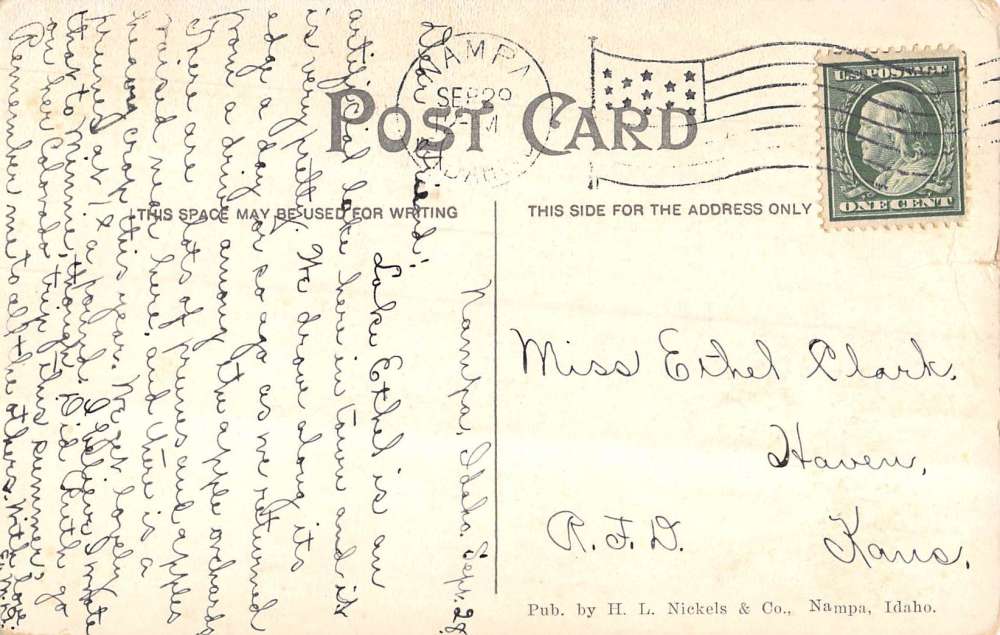 NAMPA
SEP 29
M
IDAHO
POST CARD
U.S. POSTAGE
ONE CENT
THIS SPACE MAY BE USED FOR WRITING
THIS SIDE FOR THE ADDRESS ONLY
Nampa, Idaho. Sept. 28.
Dear Friend:
Lake Ethel is an
artificial lake here in town and it
is very pretty. We drove along its
edge a day or so ago as we returned
from a drive among the apple orchards
There are lots of prunes and apples
raised near here. and there is a
heavy crop this year. We get lovely
prunes at 1¢ a pound. I believe I wrote
that to Minnie, though. Did Ruth go
on her Colorado trip this summer,
Remember me to all the others. With love
Miss Ethel Clark.
Haven,
R.F.D.
Kans.
Pub. by H. L. Nickels & Co., Nampa, Idaho.